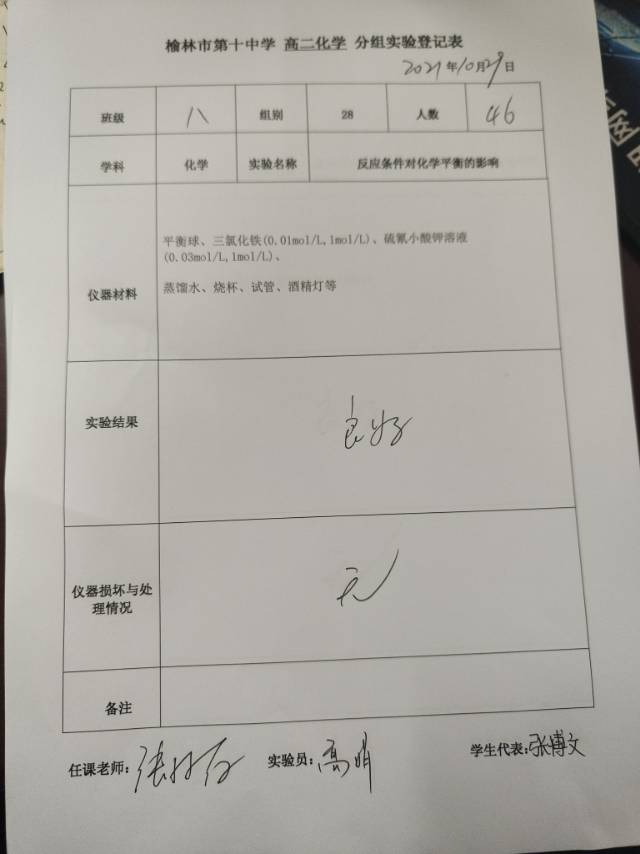 榆林市第十中学 高二化学 分组实验登记表
2021年10月29日
班级 八 组别 28 人数 46
学科 化学 实验名称 反应条件对化学平衡的影响
仪器材料
平衡球、三氯化铁(0.01mol/L,1mol/L)、硫氰小酸钾溶液
(0.03mol/L,1mol/L)、
蒸馏水、烧杯、试管、酒精灯等
实验结果 良好
仪器损坏与处
理情况
无
备注
任课老师: 实验员:高娟 学生代表:张博文